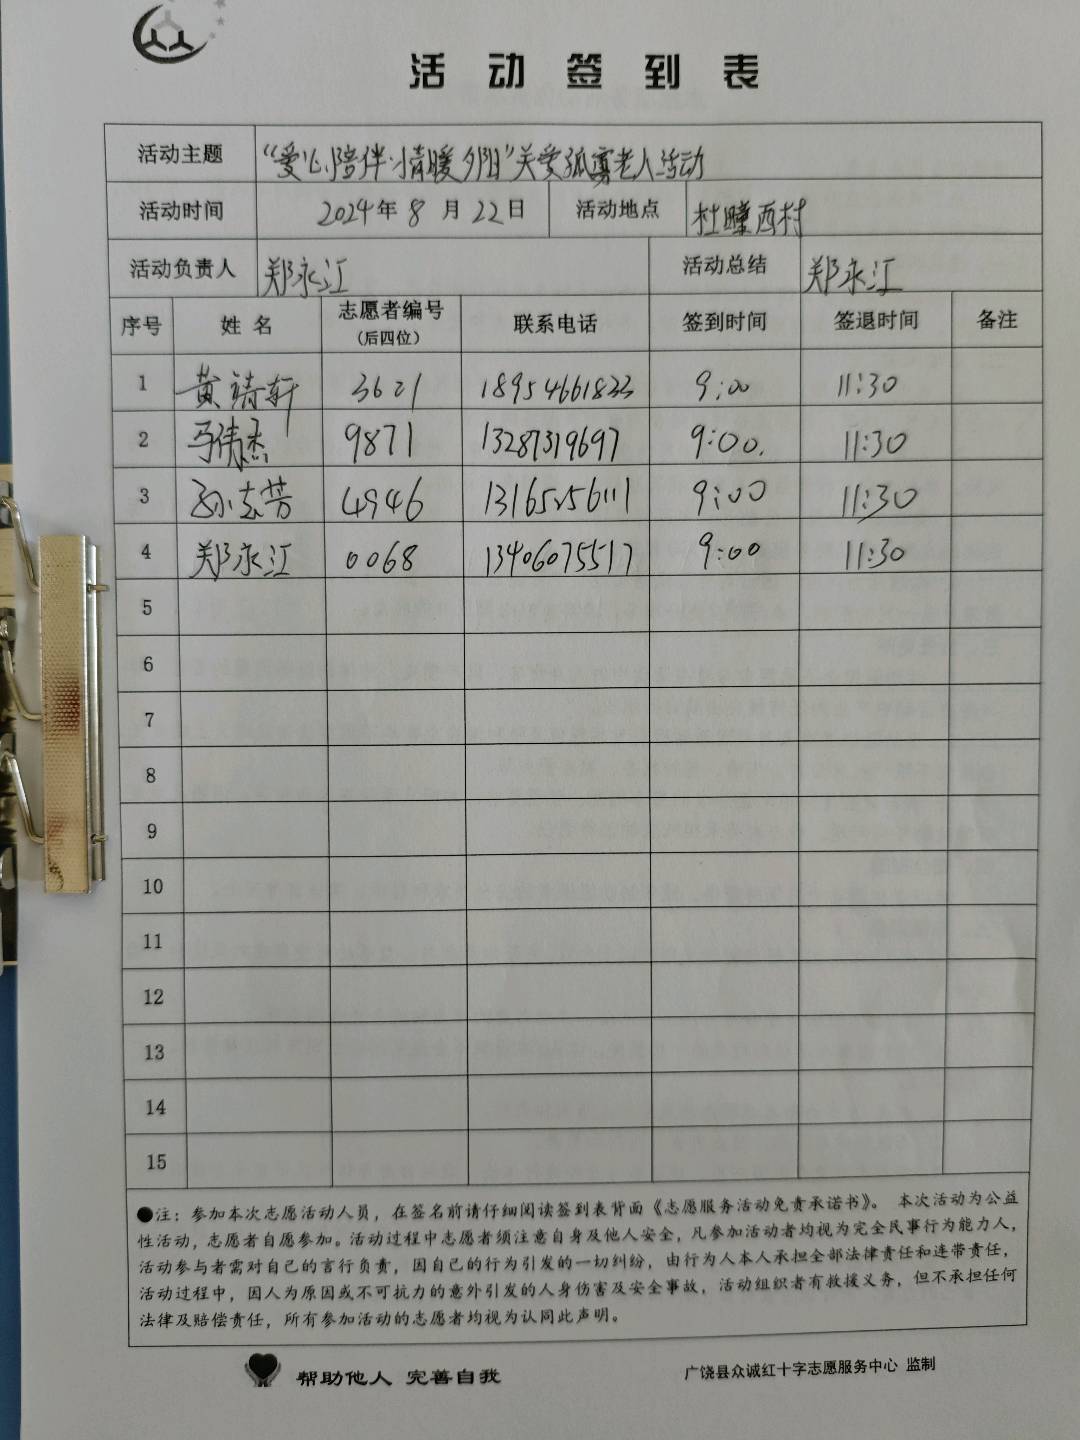 活动签到表
活动主题 “爱心陪伴·情暖夕阳”关爱孤寡老人活动
活动时间 2024年8月22日 活动地点 杜疃西村
活动负责人 郑永江 活动总结 郑永江
序号 姓名 志愿者编号（后四位） 联系电话 签到时间 签退时间 备注
1 黄靖轩 3621 18954661833 9:00 11:30
2 马伟杰 9871 13287319697 9:00. 11:30
3 孙志芳 4946 13165256111 9:00 11:30
4 郑永江 0068 13406075517 9:00 11:30
5
6
7
8
9
10
11
12
13
14
15
●注：参加本次志愿活动人员，在签名前请仔细阅读签到表背面《志愿服务活动免责承诺书》。 本次活动为公益
性活动，志愿者自愿参加。活动过程中志愿者须注意自身及他人安全，凡参加活动者均视为完全民事行为能力人，
活动参与者需对自己的言行负责，因自己的行为引发的一切纠纷，由行为人本人承担全部法律责任和连带责任，
活动过程中，因人为原因或不可抗力的意外引发的人身伤害及安全事故，活动组织者有救援义务，但不承担任何
法律及赔偿责任，所有参加活动的志愿者均视为认同此声明。
帮助他人 完善自我
广饶县众诚红十字志愿服务中心 监制